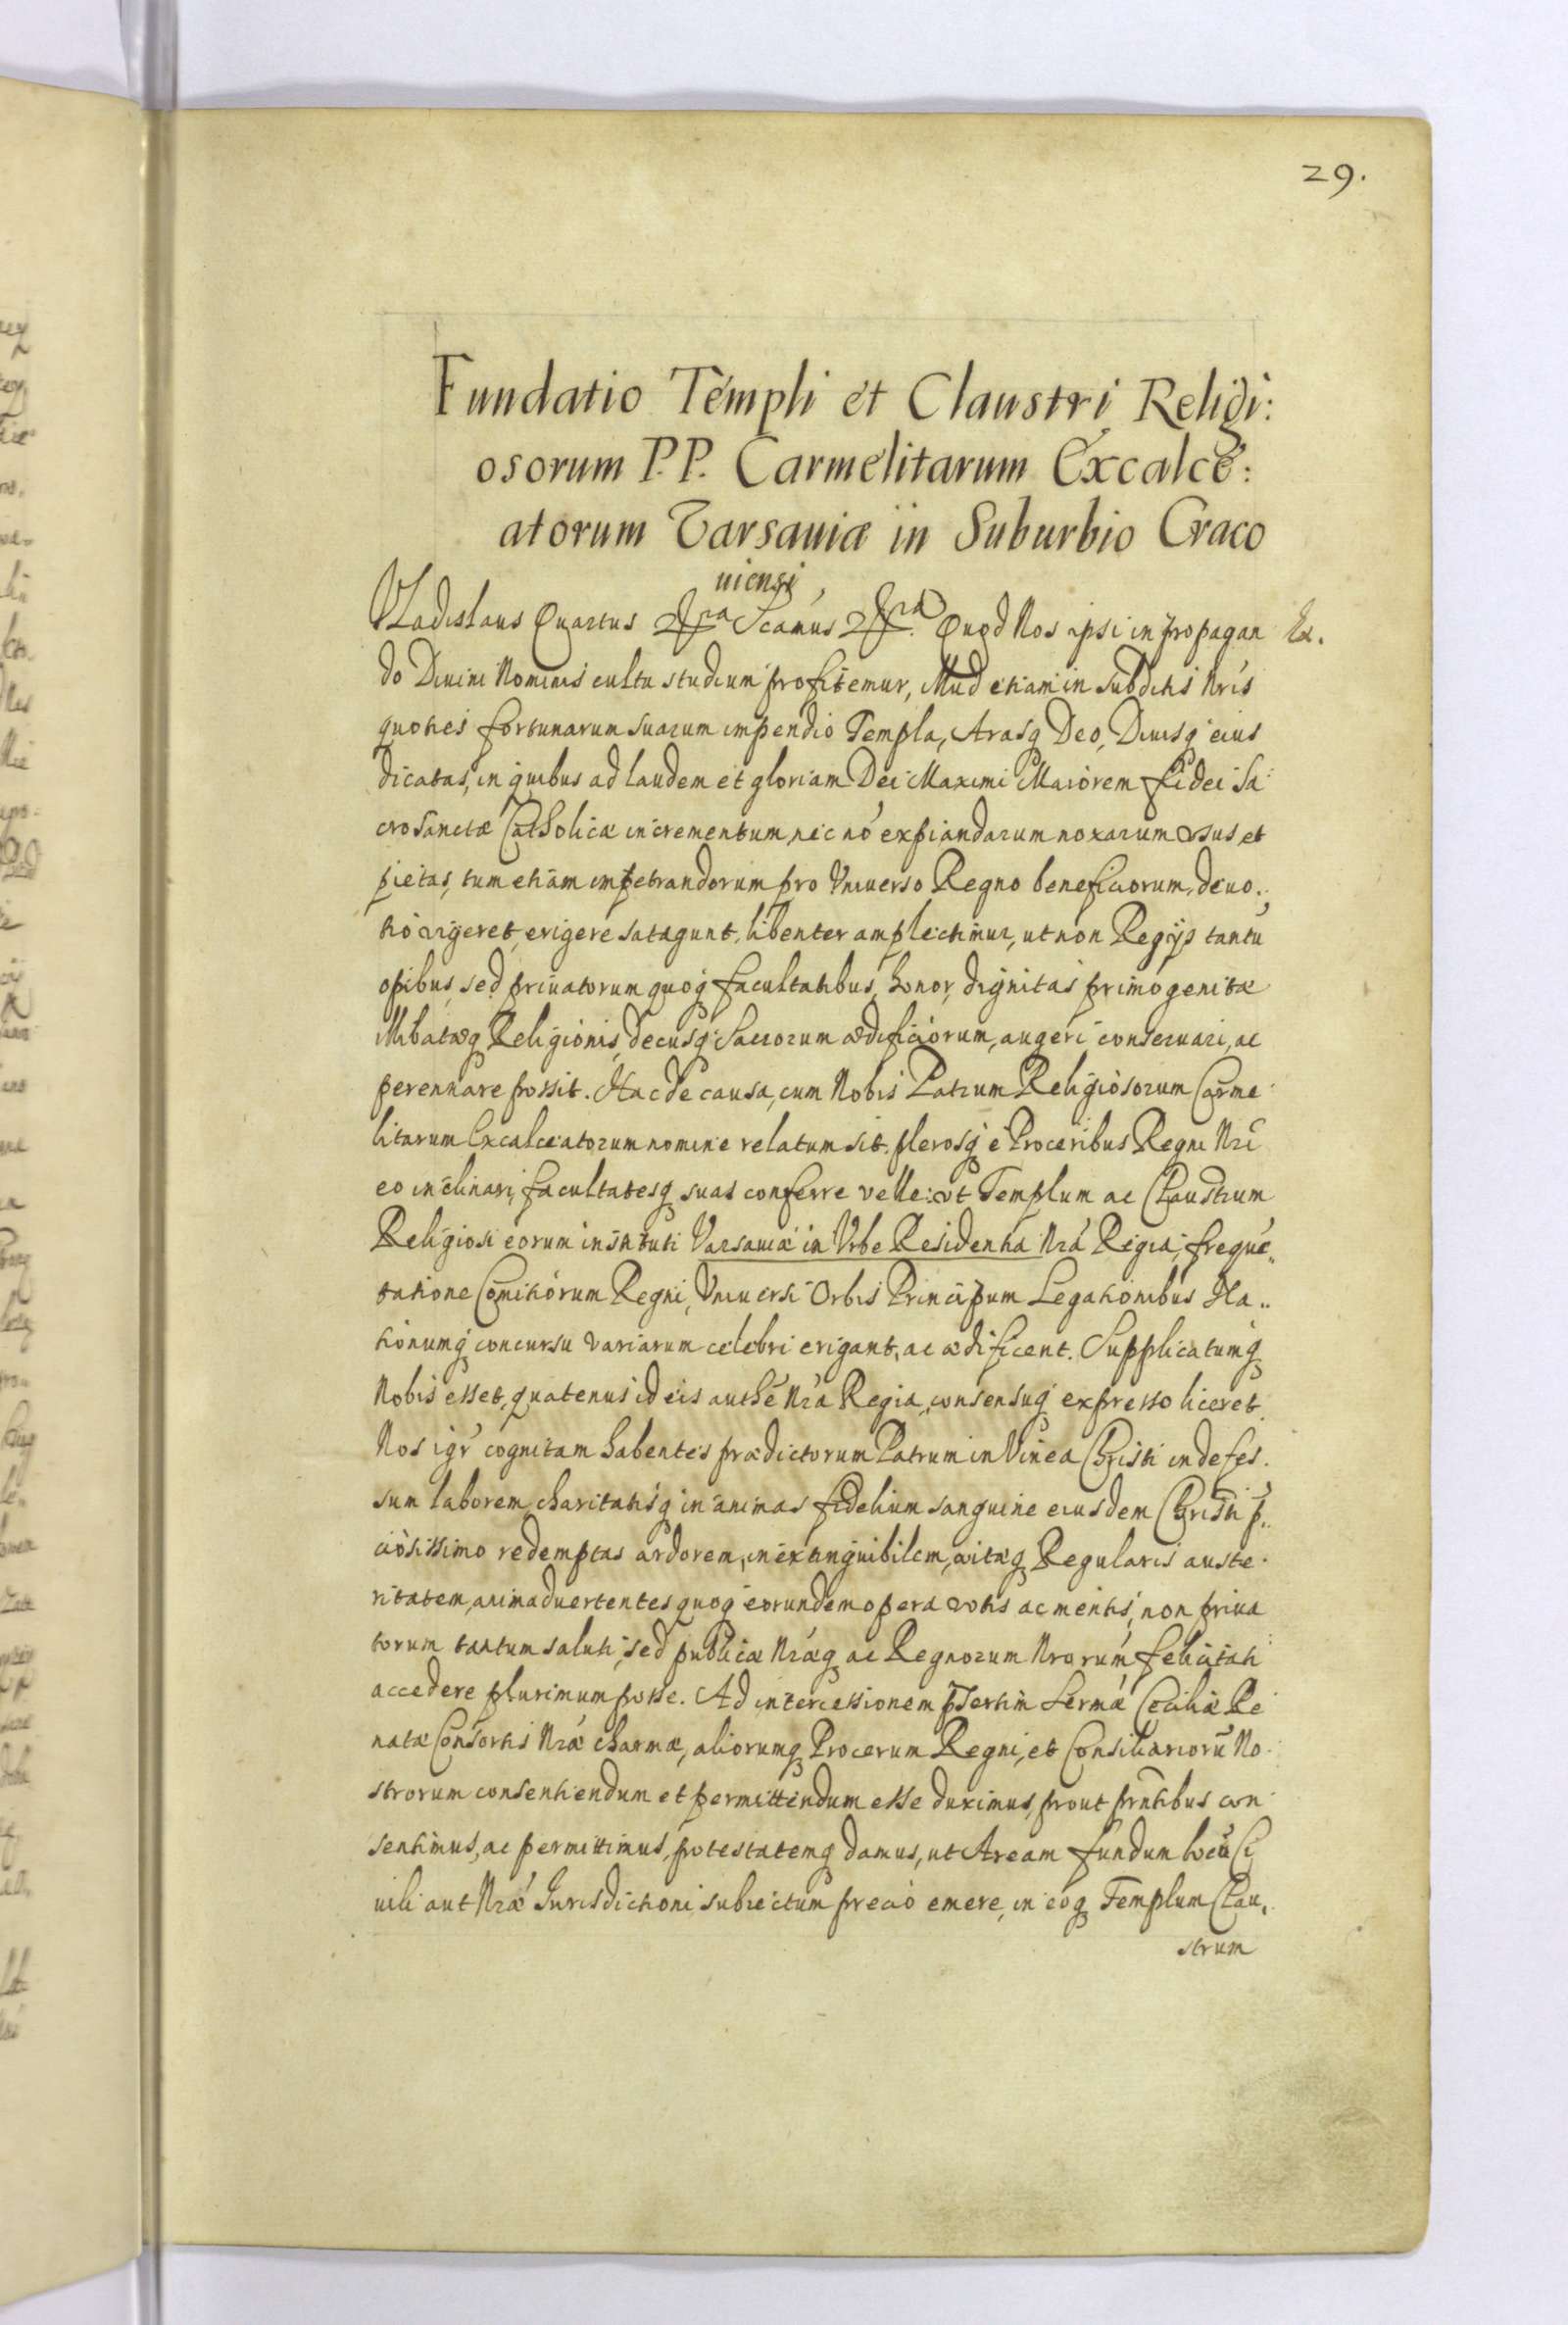 29.
Fundatio Templi et Claustri Religi:
osorum P.P. Carmelitarum Excalce:
atorum Varsauiæ in Suburbio Craco
uiensi
Vladislaus Quartus &ra Scamus &ra. Quod Nos ipsi in propagan
do Diuini Nominis cultu studium profitemur, illud etiam in subditis Nris
quoties fortunarum suarum impendio Templa, Arasq Deo, Diuisq eius
dicatas, in quibus ad laudem et gloriam Dei Maximi Maiorem fidei Sa
crosanctæ Catholicæ incrementum, nec nō expiandarum noxarum usus, et
pietas, tum etiam impetrandorum pro Vniuerso Regno beneficiorum, deuo.,
tio vigeret, erigere satagunt, libenter amplectimur, ut non Regijs tantū
opibus, sed priuatorum quoq facultatibus, honor, dignitas primogenitæ
illibatæq Religionis, decusq Sacrorum ædificiorum, augeri conseruari, ac
perennare possit. Hac de causa, cum Nobis Patrum Religiosorum Carme
litarum Excalceatorum nomine relatum sit. plerosq è Proceribus Regni Nri
eo inclinari, facultatesq suas conferre velle: ut Templum ac Claustrum
Religiosi eorum instituti Varsauiæ in Vrbe Residentia Nrá Regia, frequē„
tatione Comitiorum Regni, Vniuersi Orbis Principum Legationibus Na„
tionumq concursu variarum celebri erigant, ac ædificent. Supplicatumq
Nobis esset, quatenus id eis authē Nra Regia, consensuq expresso liceret.
Nos igr cognitam habentes prædictorum Patrum in Vinea Christi indefes.
sum laborem, charitatisq in animas fidelium sanguine eiusdem Christi p„
ciosissimo redemptas ardorem, inextinguibilem, vitæq Regularis auste.
ritatem, animaduertentes quoq eorundem opera votis ac mentis, non priua
torum tantum saluti, sed publicæ Nræq ac Regnorum Nrorum felicitati
accedere plurimum posse. Ad intercessionem psertim Sermæ Ceciliæ Re
natæ Consortis Nræ charmæ, aliorumq Procerum Regni, et Consiliariorū No
strorum consentiendum et permittendum esse duximus, prout prntibus con
sentimus, ac permittimus, potestatemq damus, ut Aream fundum locū Ci
uili aut Nræ Jurisdictioni subiectum precio emere, in eoq Templum Clau„
strum